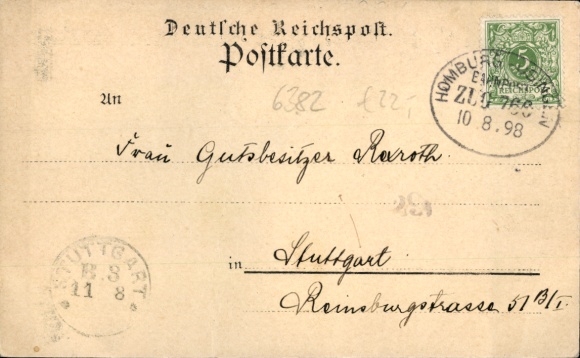 Deutsche Reichspost.
Postkarte.
5
REICHSPOST
HOMBURG USINGEN
BAHNPOST
ZUG 766
10.8.98
An
6382
£22,-
Frau Gutsbesitzer Raroth.
in Stuttgart
Reinsburgstrasse 51 B/I.
STUTTGART
11 8